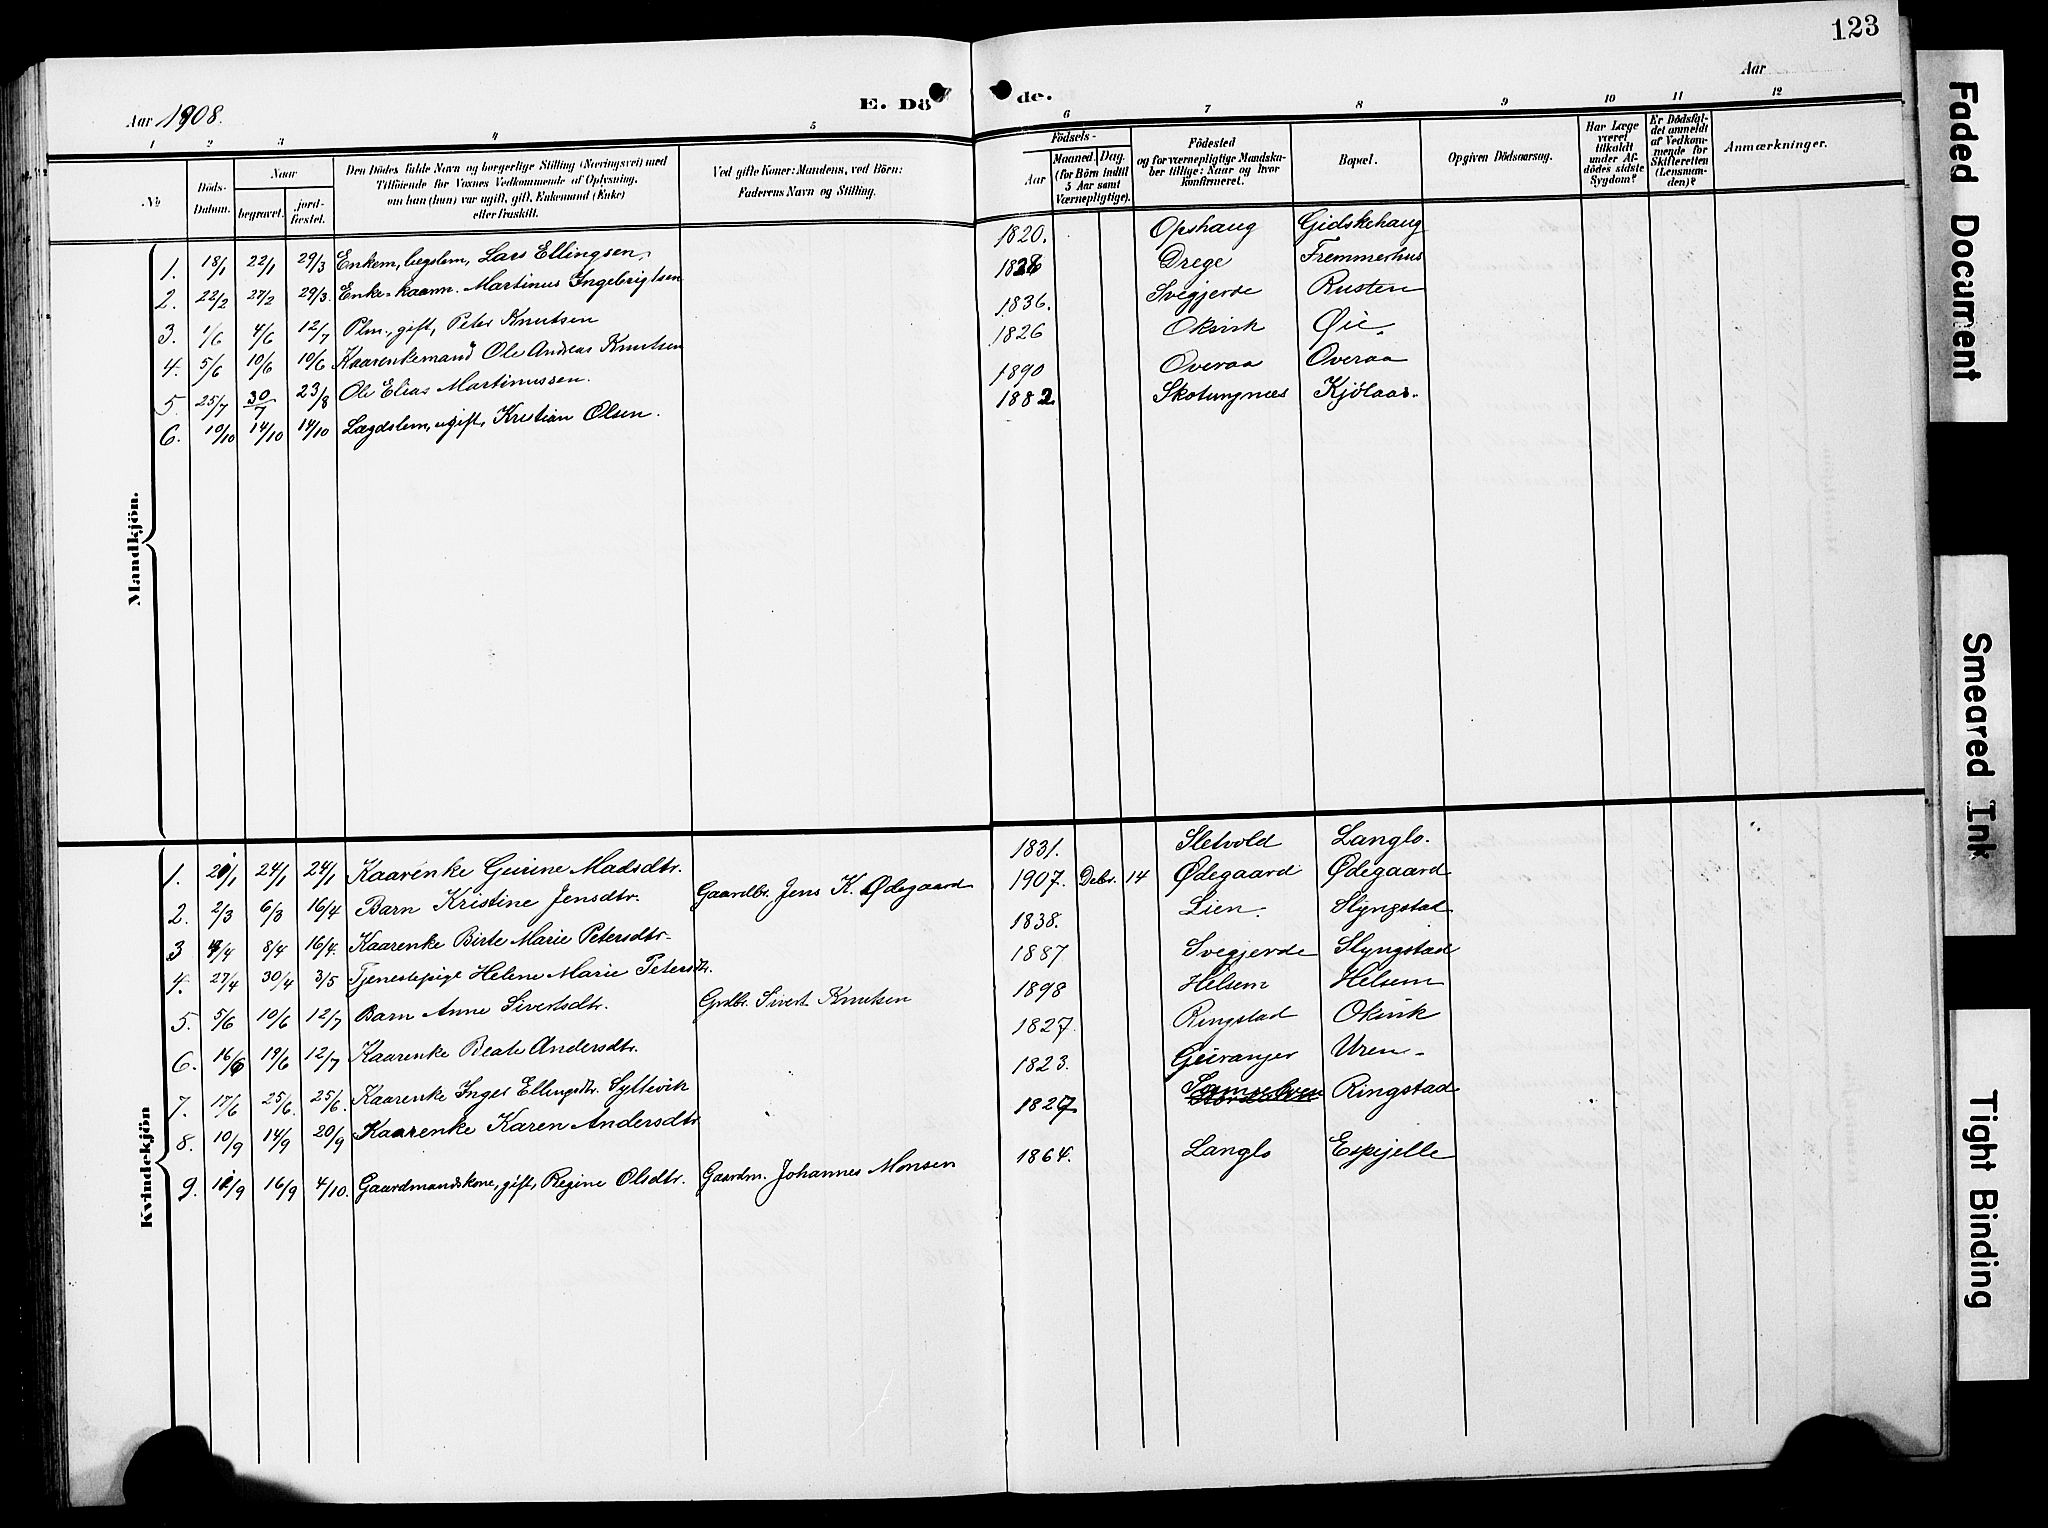 123
Aar 1908.
E. Dö de.
Aar
1 2 3 4 5 6 7 8 9 10 11 12
No
Döds-Datum.
Naar
begravet.
jord-fæstet.
Den Dödes fulde Navn og borgerlige Stilling (Næringsvei) med
Tilföiende for Voxnes Vedkommende af Oplysning,
om han (hun) var ugift, gift, Enkemand (Enke)
eller fraskilt.
Ved gifte Koner: Mandens, ved Börn:
Faderens Navn og Stilling.
Födsels-
Aar
Maaned. Dag.
(for Börn indtil
5 Aar samt
Værnepligtige).
Födested
og for værnepligtige Mandska-
ber tillige: Naar og hvor
konfirmeret.
Bopæl.
Opgiven Dödsaarsag.
Har Læge
været
tilkaldt
under Af-
dödes sidste
Sygdom?
Er Dödsfal-
det anmeldt
af Vedkom-
mende for
Skifteretten
(Lensman-
den)?
Anmærkninger.
Mandkjön.
1. 18/1 22/1 29/3 Enkem, lægslem, Lars Ellingsen. 1820. Opshaug Gidskehaug
2. 22/2 27/2 29/3. Enke-kaarm. Martinus Ingebrigtsen 1828 Drege Fremmerhus
3. 1/6 4/6 12/7 Plm., gift, Peter Knutsen 1836. Svegjerde Rusten
4. 5/6 10/6 10/6 Kaarenkemand Ole Andreas Knutsen 1826 Oksvik Øie.
5. 25/7 30/7 23/8 Ole Elias Martinussen. 1890 Overaa Overaa
6. 10/10 14/10 14/10 Lægdslem, ugift, Kristian Olsen. 1882 Skotungnæs Kjölaas.
Kvindekjön
1. 24/1 24/1 Kaarenke Gurine Madsdtr. 1831. Sletvold Langlo.
2. 2/3 6/3 16/4 Barn Kristine Jensdtr. Gaardbr. Jens K. Ødegaard 1907. Debr. 14 Ødegaard Ødegaard
3 4/4 8/4 16/4. Kaarenke Birte Marie Petersdtr. 1838. Lien. Slyngstad
4. 27/4 30/4 3/5 Tjenestepige Heline Marie Petersdtr. 1887 Svegjerde Slyngstad
5. 5/6 10/6 12/7 Barn Anne Sivertsdtr. Grdbr. Sivert Knutsen 1898 Helsem Helsem
6. 16/6 19/6 12/7 Kaarenke Beate Andersdtr. 1827. Ringstad Okvik
7. 17/6 25/6. 25/6. Kaarenke Inger Ellingsdtr. Syltevik 1823. Geiranger Uren.
8. 10/9 14/9 20/9 Kaarenke Karen Andersdtr 1827 Ringstad
9. 11/9 16/9 4/10. Gaardmandskone, gift, Regine Olsdtr. Gaardm. Johannes Monsen 1864. Langlo Espjelle
Faded Document
Smeared Ink
Tight Binding